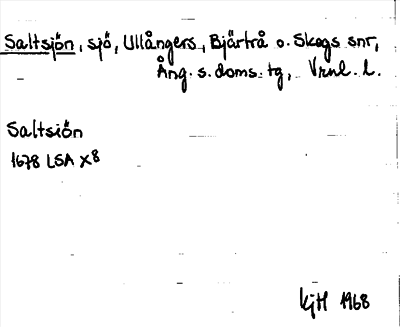 Saltsjön, sjö, Ullångers, Bjärtrå o. Skogs snr,
Ång. s. doms. tg, Vrnl. l.
Saltsiön
1678 LSA X8
KjH 1968